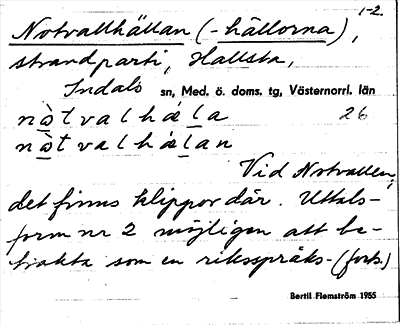 1-2.
Notvallhällan (-hällorna),
strandparti, Hallsta,
Indals sn, Med. ö. doms. tg, Västernorrl. län
nòtvalhäla 26
nòtvalhälan
Vid Notvallen,
det finns klippor där. Uttals-
form nr 2 möjligen att be-
trakta som en riksspråks-(fork.)
Bertil Flemström 1955